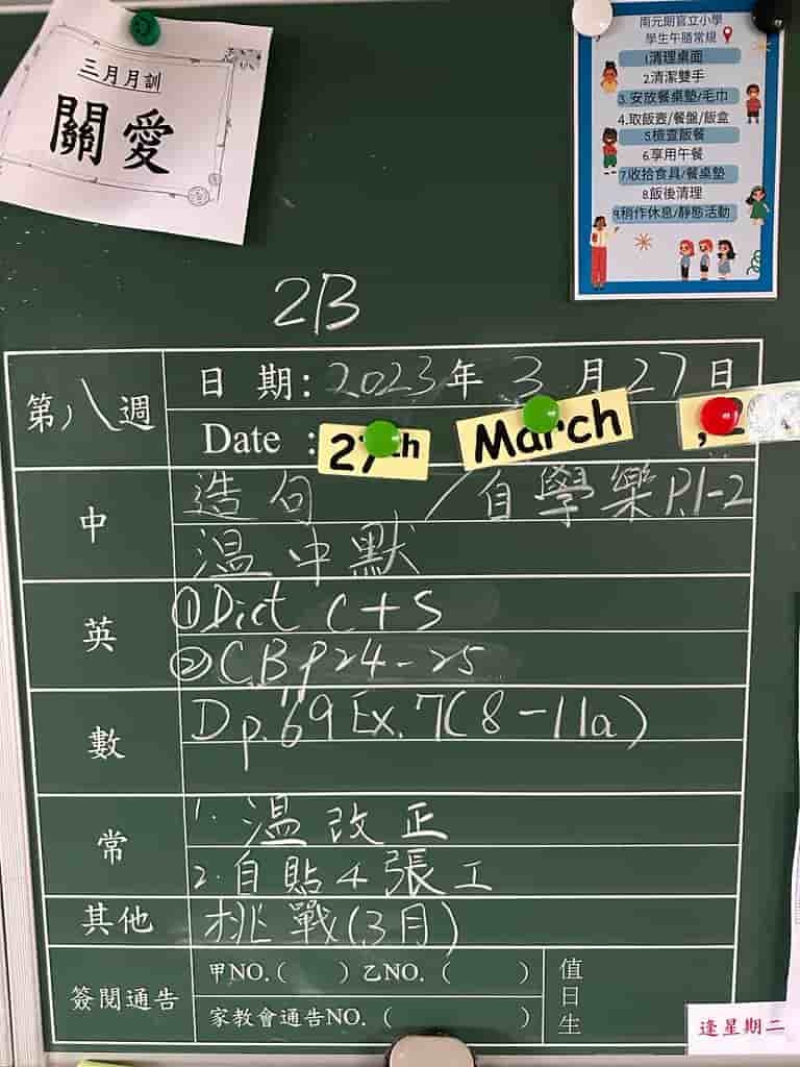 三月月訓
關愛
南元朗官立小學
學生午膳常規
1.清理桌面
2.清潔雙手
3.安放餐桌墊/毛巾
4.取飯壺/餐盤/飯盒
5.檢查飯餐
6.享用午餐
7.收拾食具/餐桌墊
8.飯後清理
9.稍作休息/靜態活動
2B
第八週
日期:2023年3月27日
Date : 27th March , 2
中
造句 / 自學樂P.1-2
温中默
英
①Dict C+S
②C.B p24-25
數
Dp.69 Ex.7(8-11a)
常
1. 温改正
2. 自貼4張工
其他
挑戰(3月)
簽閱通告
甲NO.( ) 乙NO.( )
家教會通告NO.( )
值日生
逢星期二